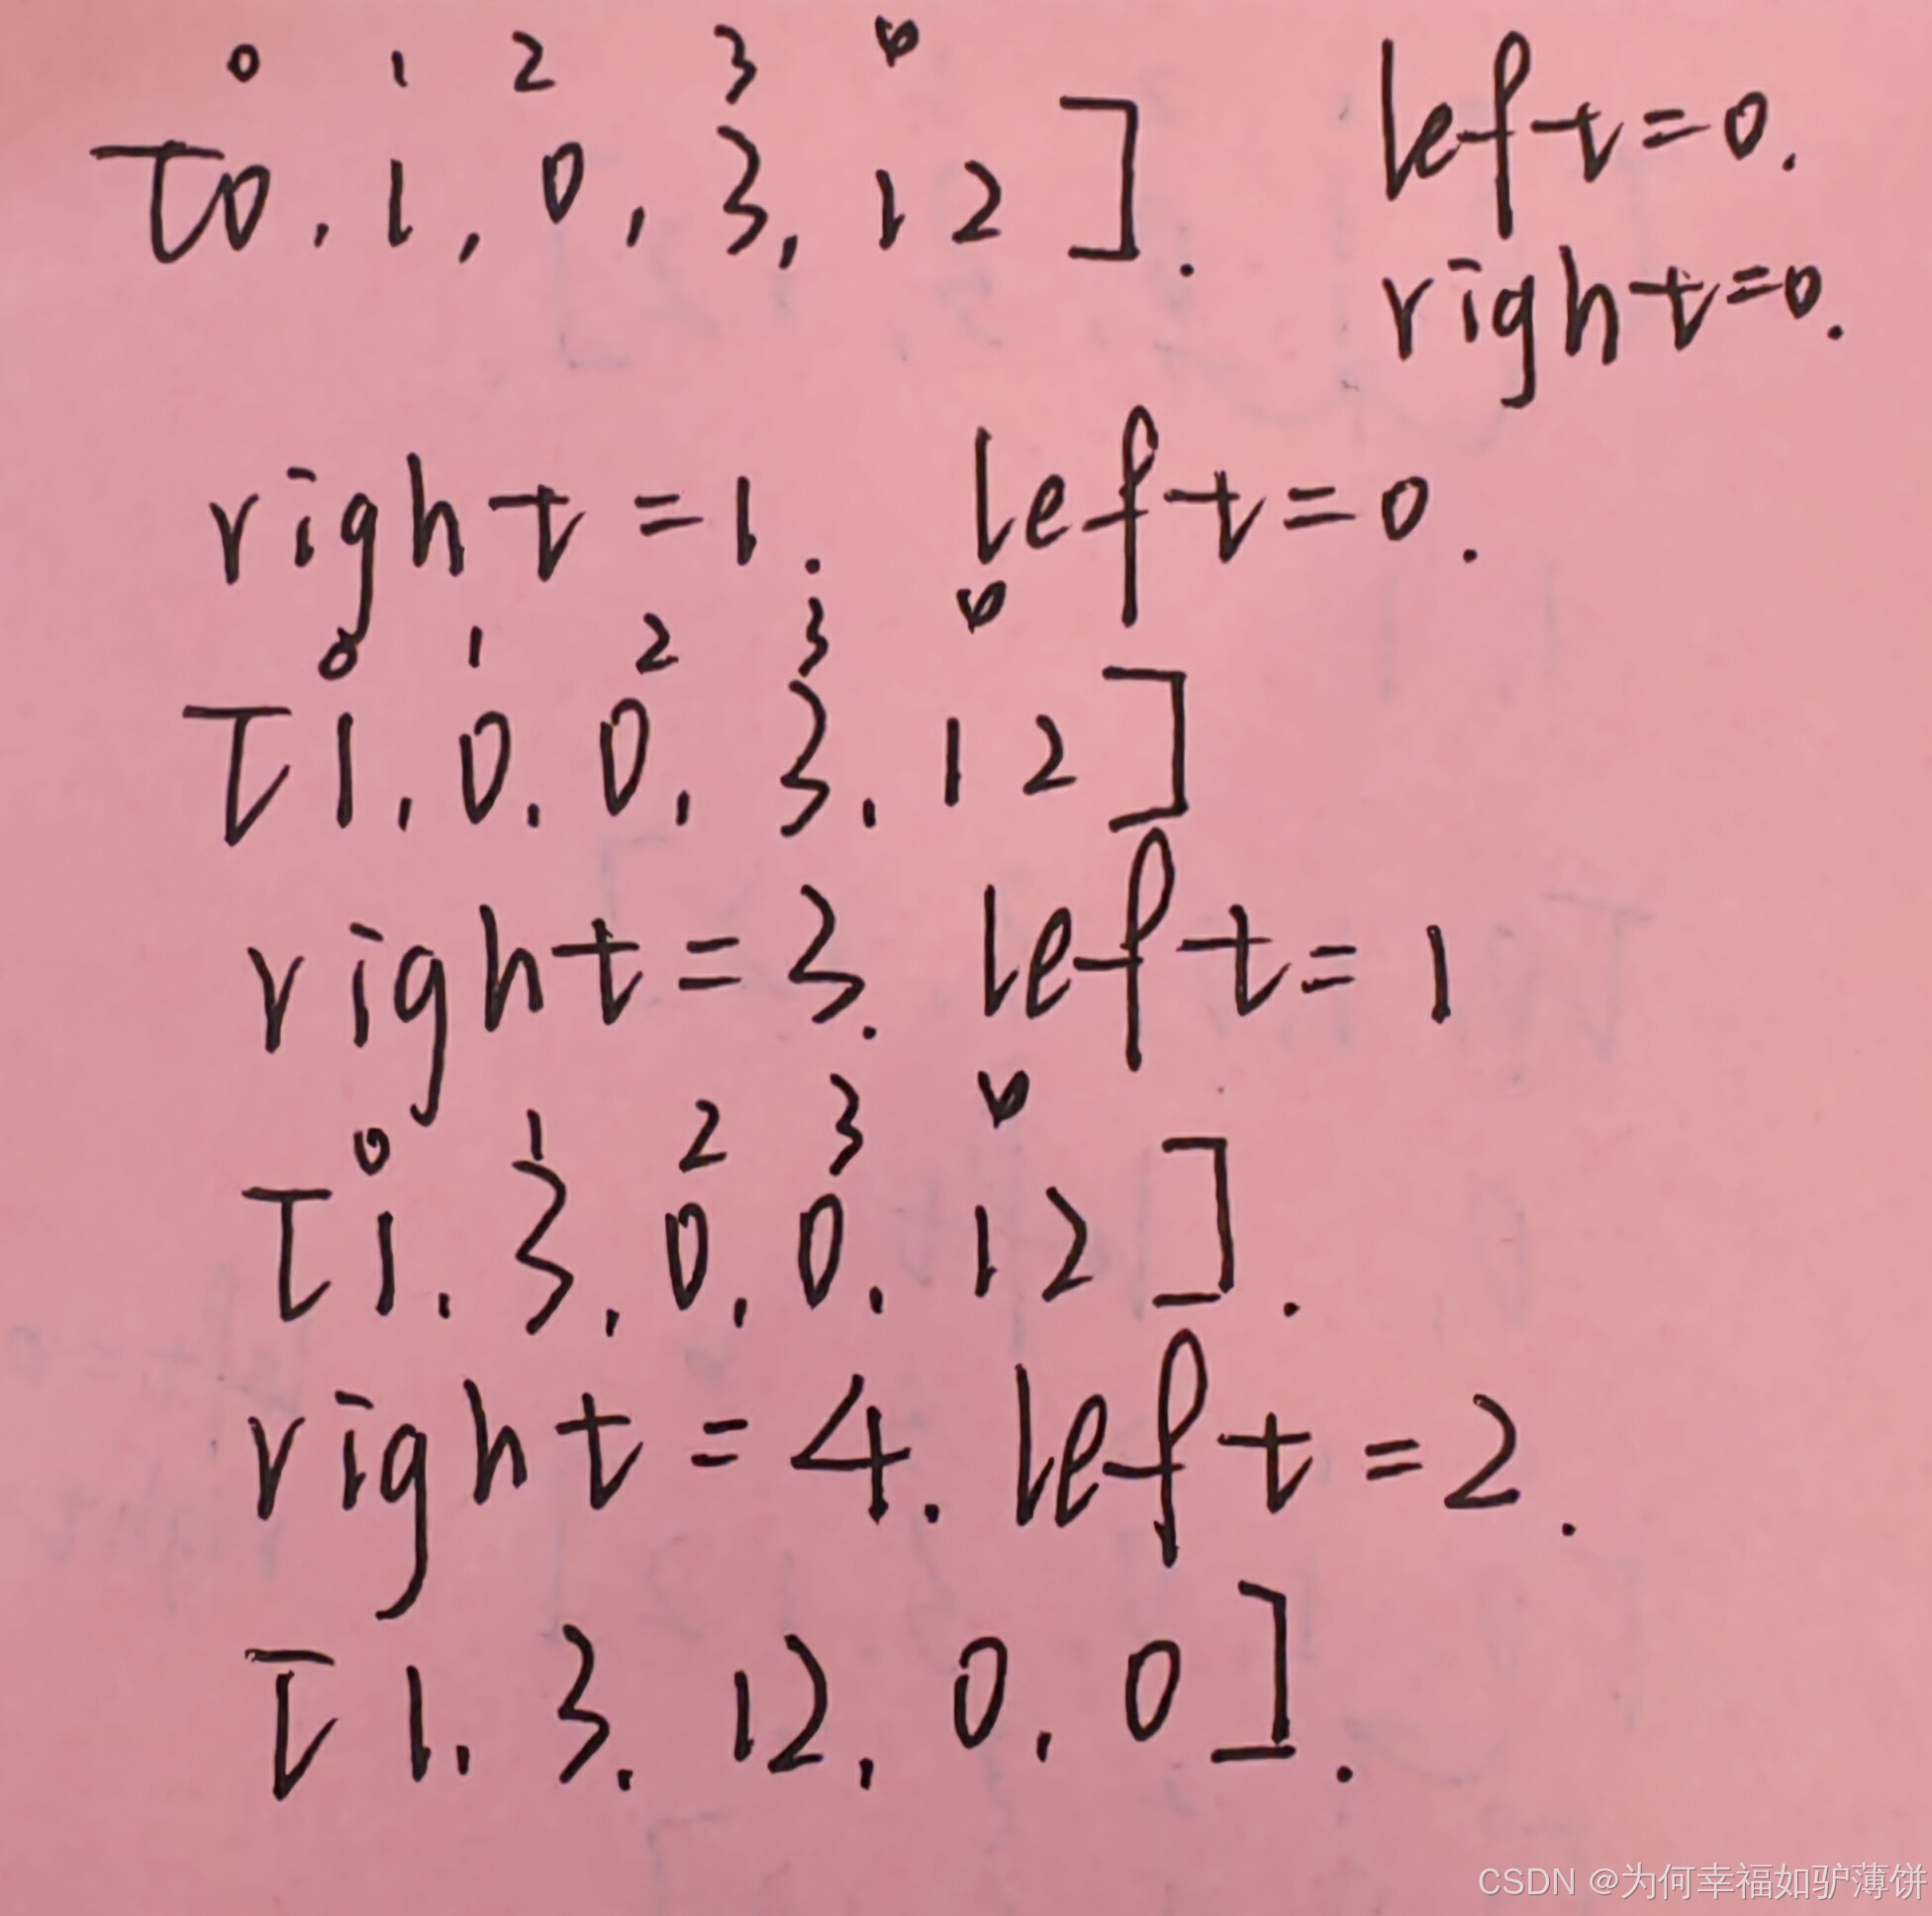 0 1 2 3 4
[0, 1, 0, 3, 12]. left=0.
right=0.
right=1. left=0.
0 1 2 3 4
[1, 0, 0, 3, 12]
right=3. left=1
0 1 2 3 4
[1, 3, 0, 0, 12].
right=4. left=2.
[1, 3, 12, 0, 0].
CSDN @为何幸福如驴薄饼